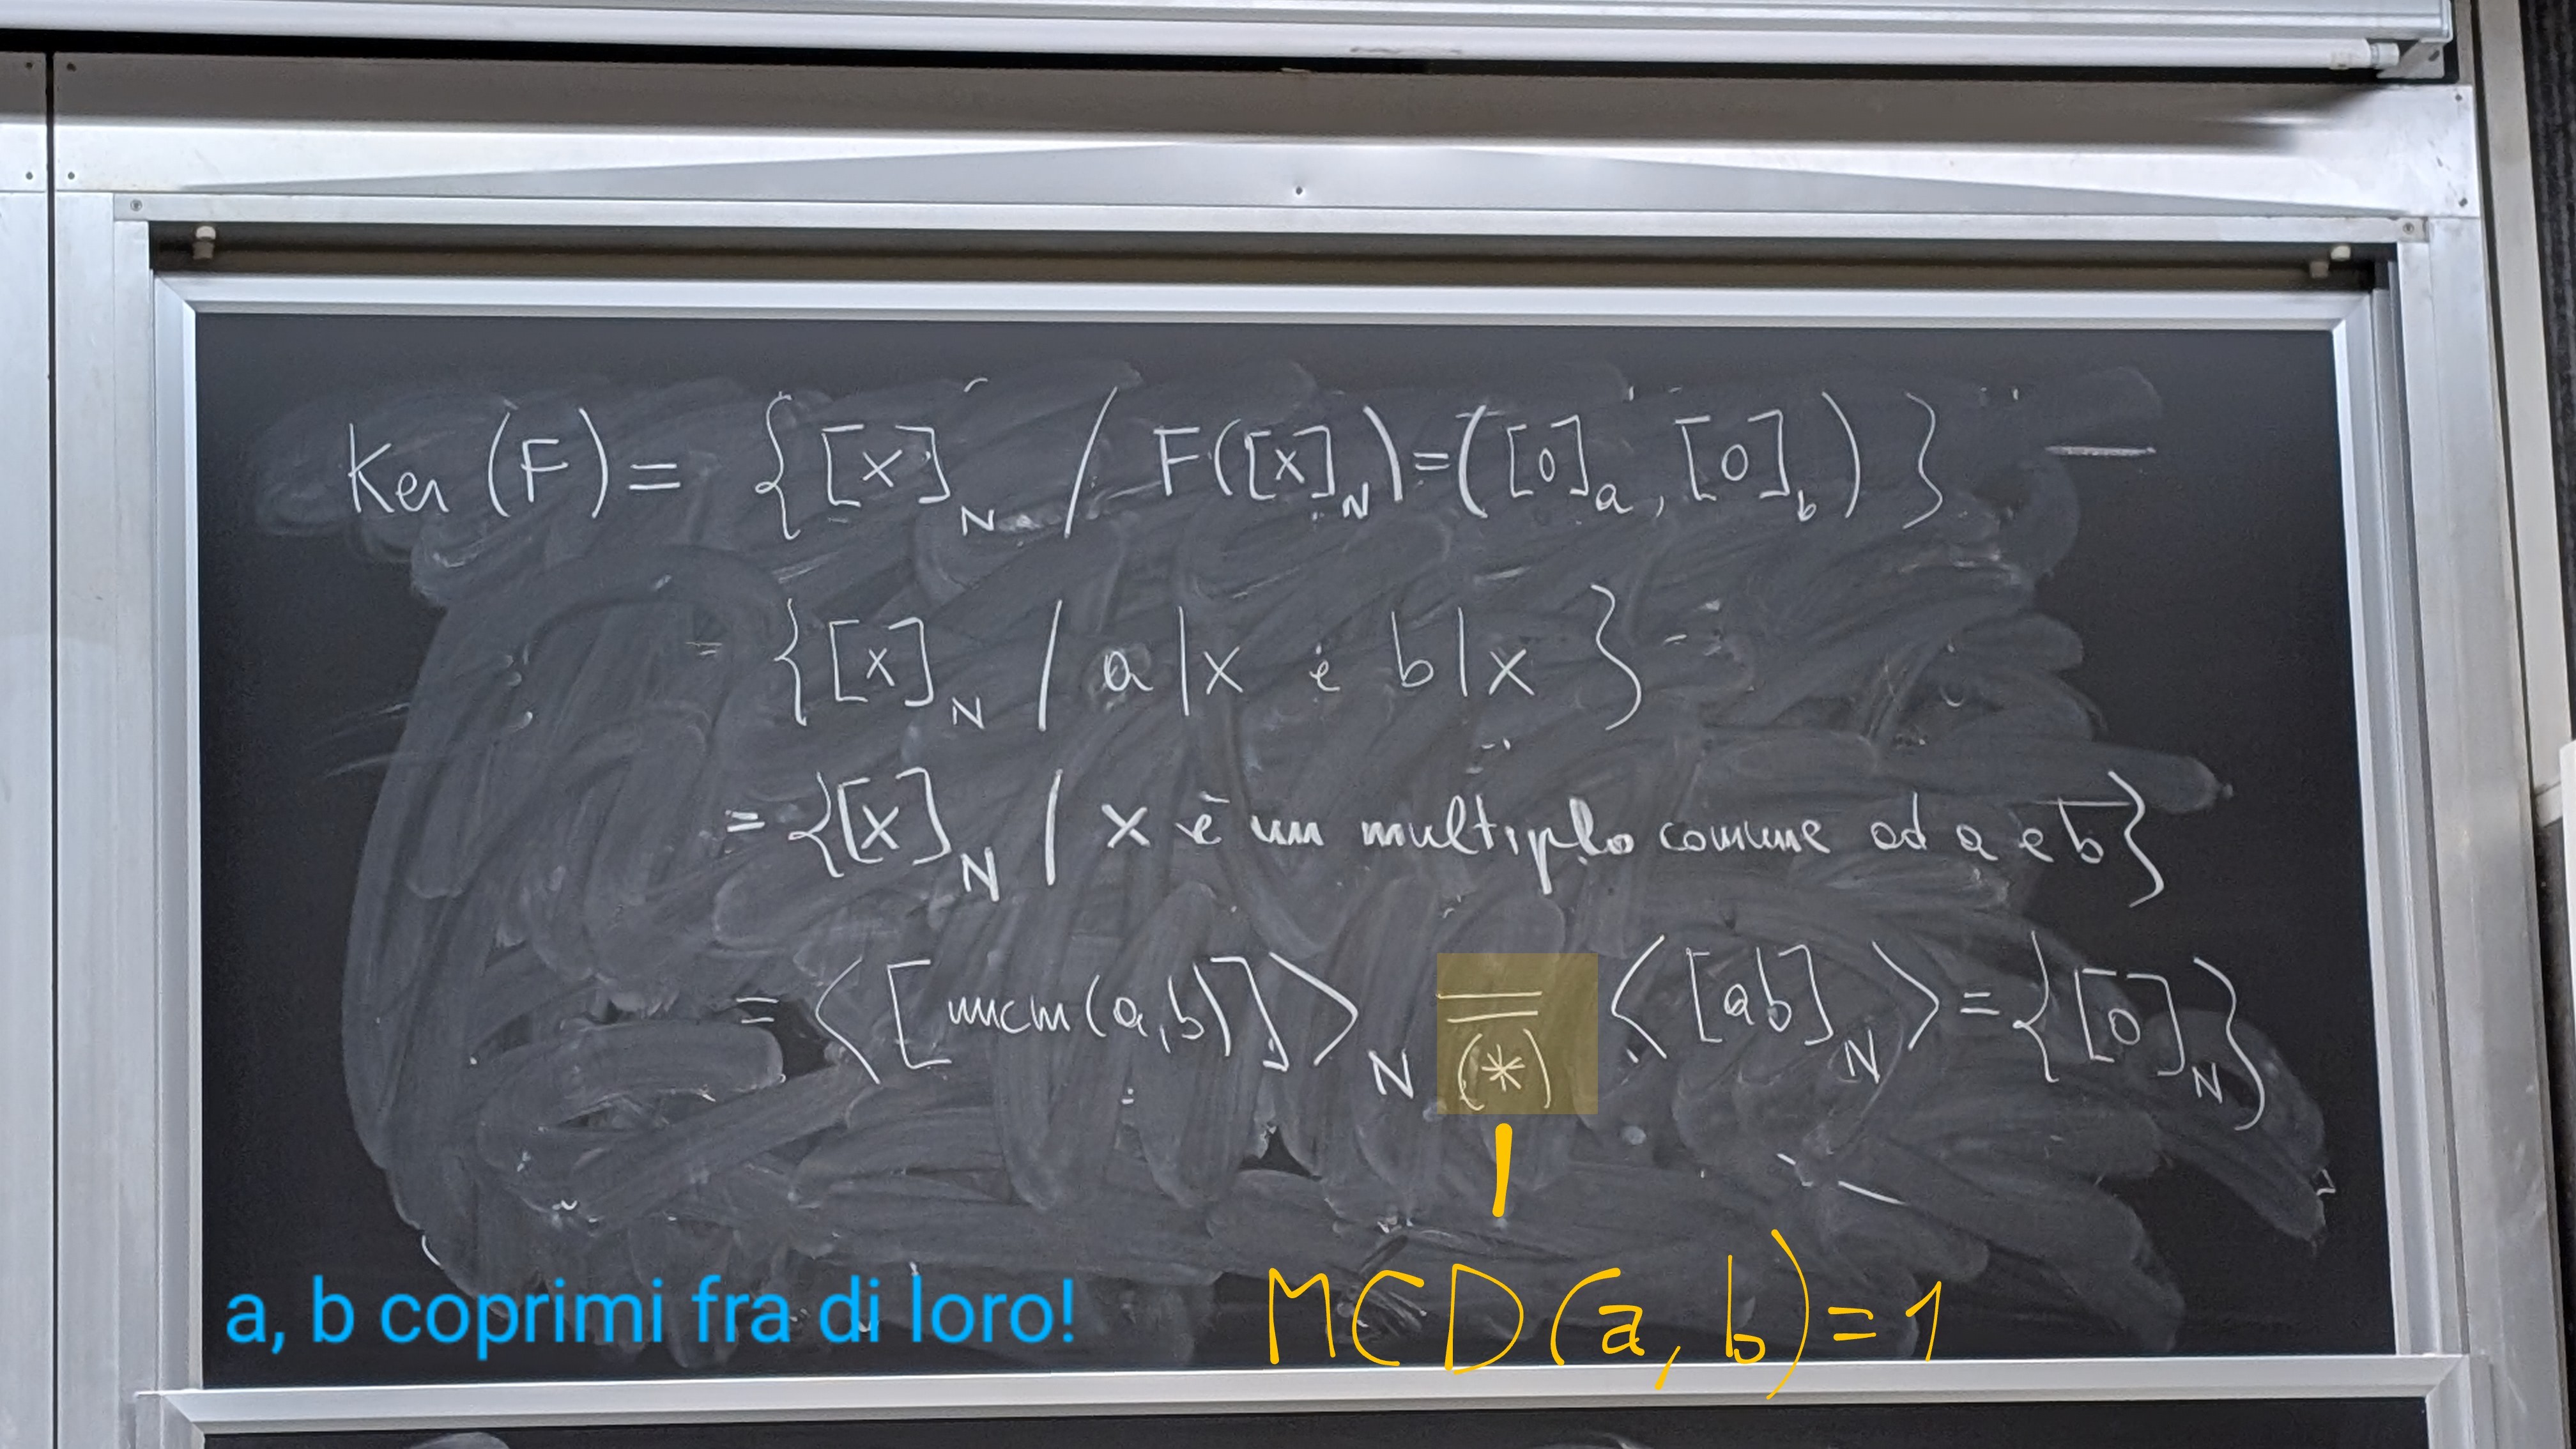 Ker (F) = { [x]_N / F([x]_N) = ([0]_a, [0]_b) }
= { [x]_N / a | x e b | x } =
= { [x]_N / x è un multiplo comune ad a e b }
= < [mcm(a,b)] >_N = < [ab]_N > = { [0]_N }
(*)
a, b coprimi fra di loro!
MCD(a, b) = 1